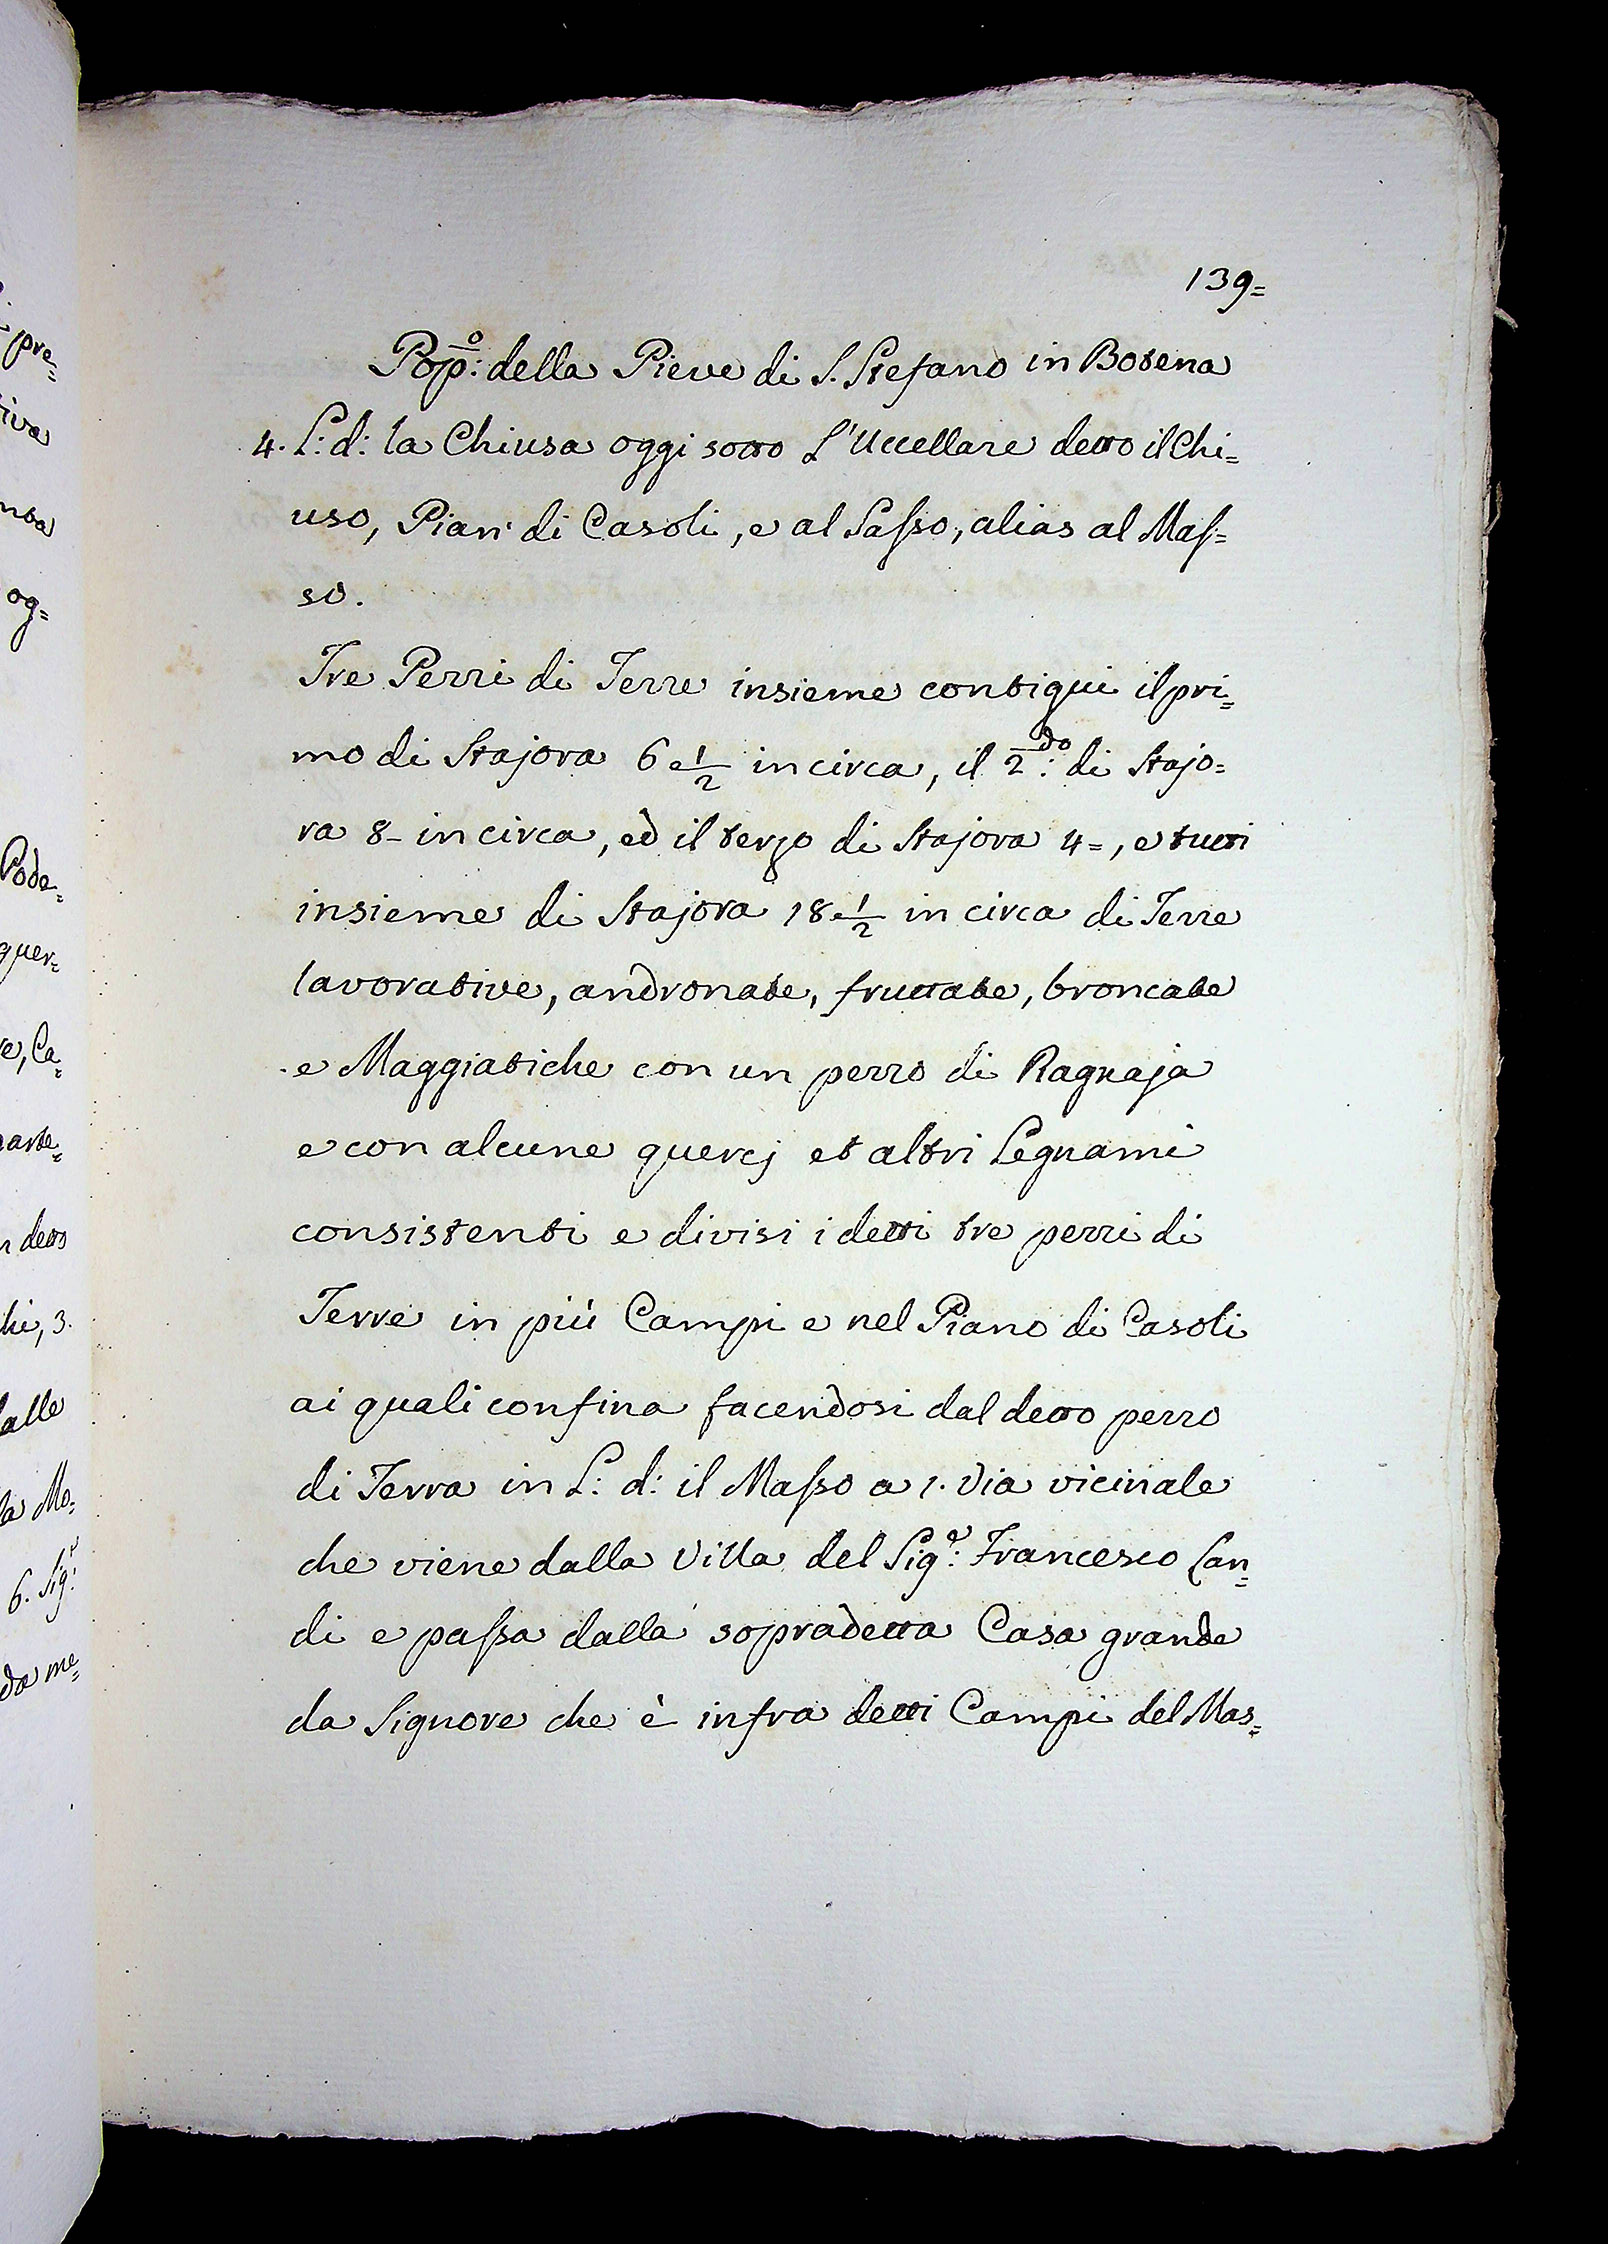 pre=
tiva
nta
og=
Pode=
quer=
re, Ca=
arte=
n detto
hi, 3.
dalle
la Mo=
6. Sig.r:
da me=
139=
Pop.o: della Pieve di S. Stefano in Botena
4. L: d: la Chiusa oggi sotto L'Uccellare detto il Chi=
uso, Pian di Casoli, e al Sasso, alias al Mas=
so.
Tre Pezzi di Terre insieme contigui il pri=
mo di Stajora 6 e 1/2 in circa, il 2.do: di Stajo=
ra 8- in circa, ed il terzo di Stajora 4=, e tutti
insieme di Stajora 18 e 1/2 in circa di Terre
lavorative, andronate, fruttate, broncate
e Maggiatiche con un pezzo di Ragnaja
e con alcune quercj et altri Legnami
consistenti e divisi i detti tre pezzi di
Terre in più Campi e nel Piano di Casoli
ai quali confina facendosi dal detto pezzo
di Terra in L: d: il Masso a 1. Via vicinale
che viene dalla Villa del Sig.r: Francesco Can=
di e passa dalla sopradetta Casa grande
da Signore che è infra detti Campi del Mas=